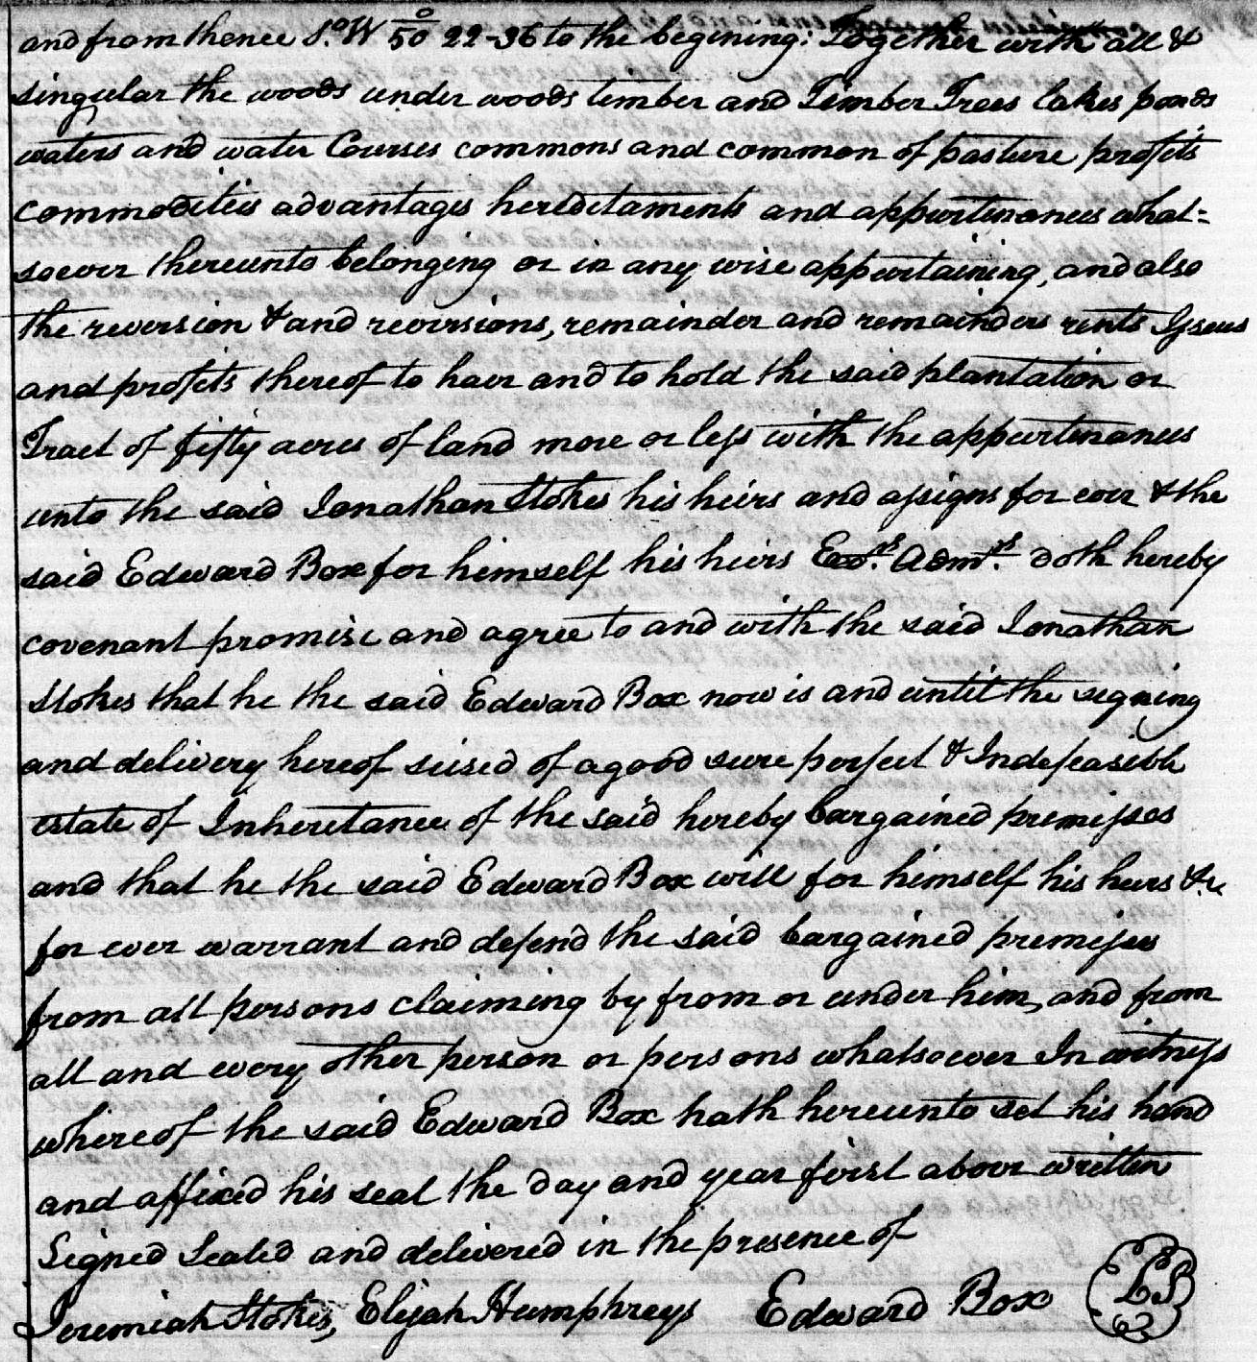 and from thence So. W 50° 22-36 to the begining: Together with all &
singular the woods under woods timber and Timber Trees lakes ponds
waters and water Courses commons and common of pasture profits
commodities advantages hereditaments and appurtenances what=
soever thereunto belonging or in any wise appurtaining, and also
the reversion & and reversions, remainder and remainders rents Issues
and profits thereof to have and to hold the said plantation or
Tract of fifty acres of land more or less with the appurtenances
unto the said Jonathan Stokes his heirs and assigns for ever & the
said Edward Box for himself his heirs Exrs. Admrs. doth hereby
covenant promise and agree to and with the said Jonathan
Stokes that he the said Edward Box now is and until the signing
and delivery hereof seised of a good sure perfect & Indefeasible
estate of Inheritance of the said hereby bargained premisses
and that he the said Edward Box will for himself his heirs &c
for ever warrant and defend the said bargained premises
from all persons claiming by from or under him, and from
all and every other person or persons whatsoever In witness
whereof the said Edward Box hath hereunto set his hand
and affixed his seal the day and year first above written
Signed Sealed and delivered in the presence of
Jeremiah Stokes, Elijah Humphreys Edward Box LS